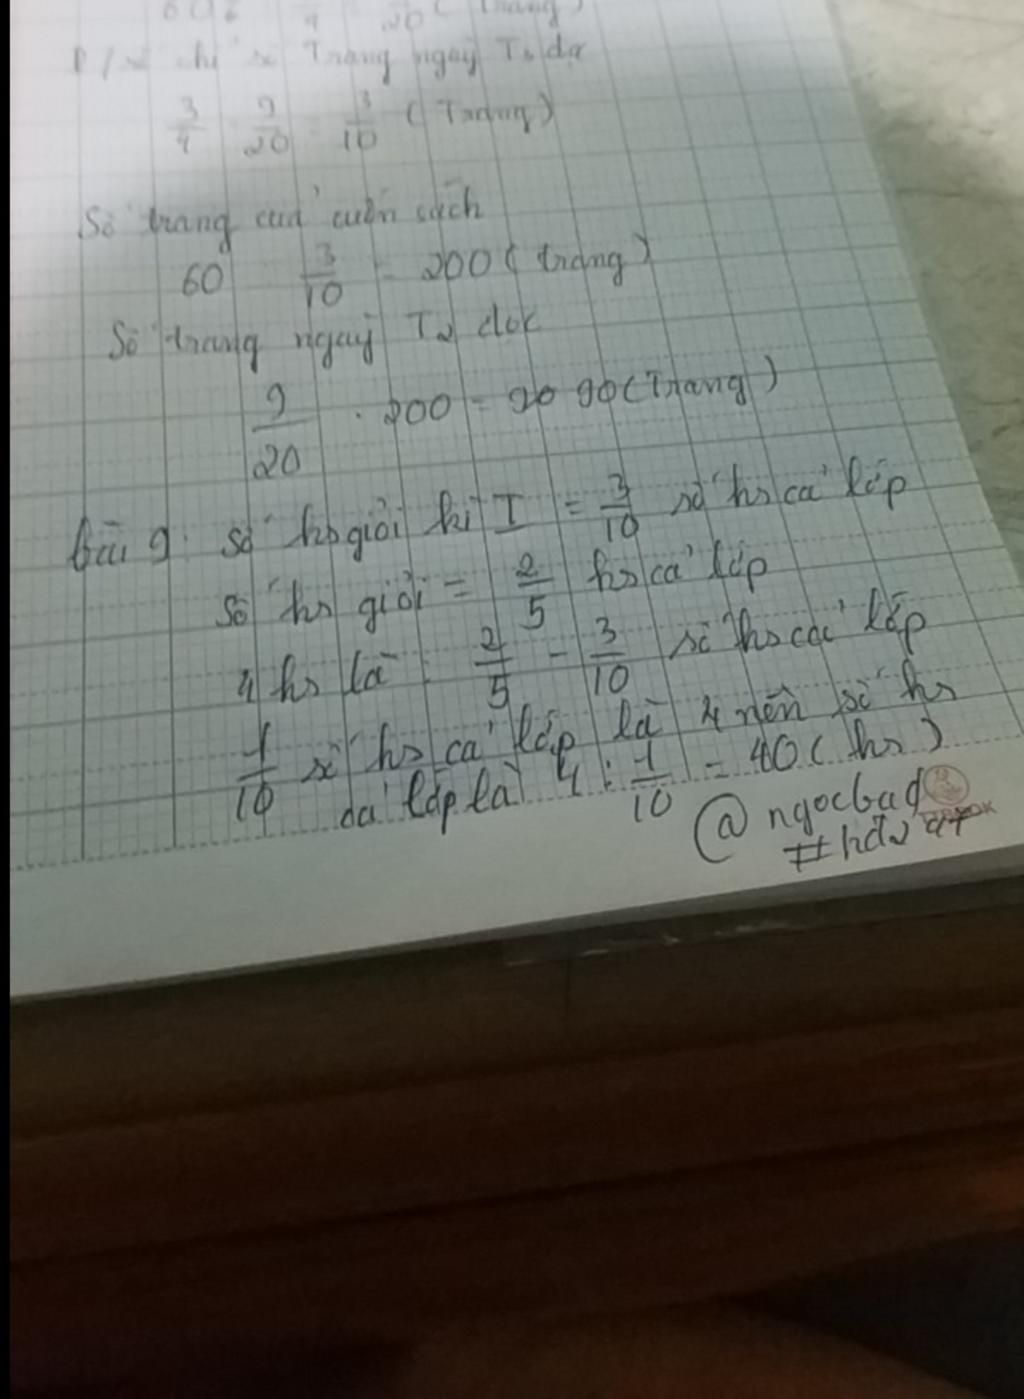 trang ngay T2
3/4 9/20 3/10 (Trang)
Số trang của cuốn sách
60 3/10 = 200 (trang)
Số trang ngay T2 đọc
9/20 . 200 = 90 (Trang)
bài 9: số hs giỏi kì I = 3/10 số hs cả lớp
Số hs giỏi = 2/5 hs cả lớp
4 hs là : 2/5 - 3/10 số hs cả lớp
1/10 số hs cả lớp là 4 nên số hs
cả lớp là 4 : 1/10 = 40 (hs)
@ngocbad